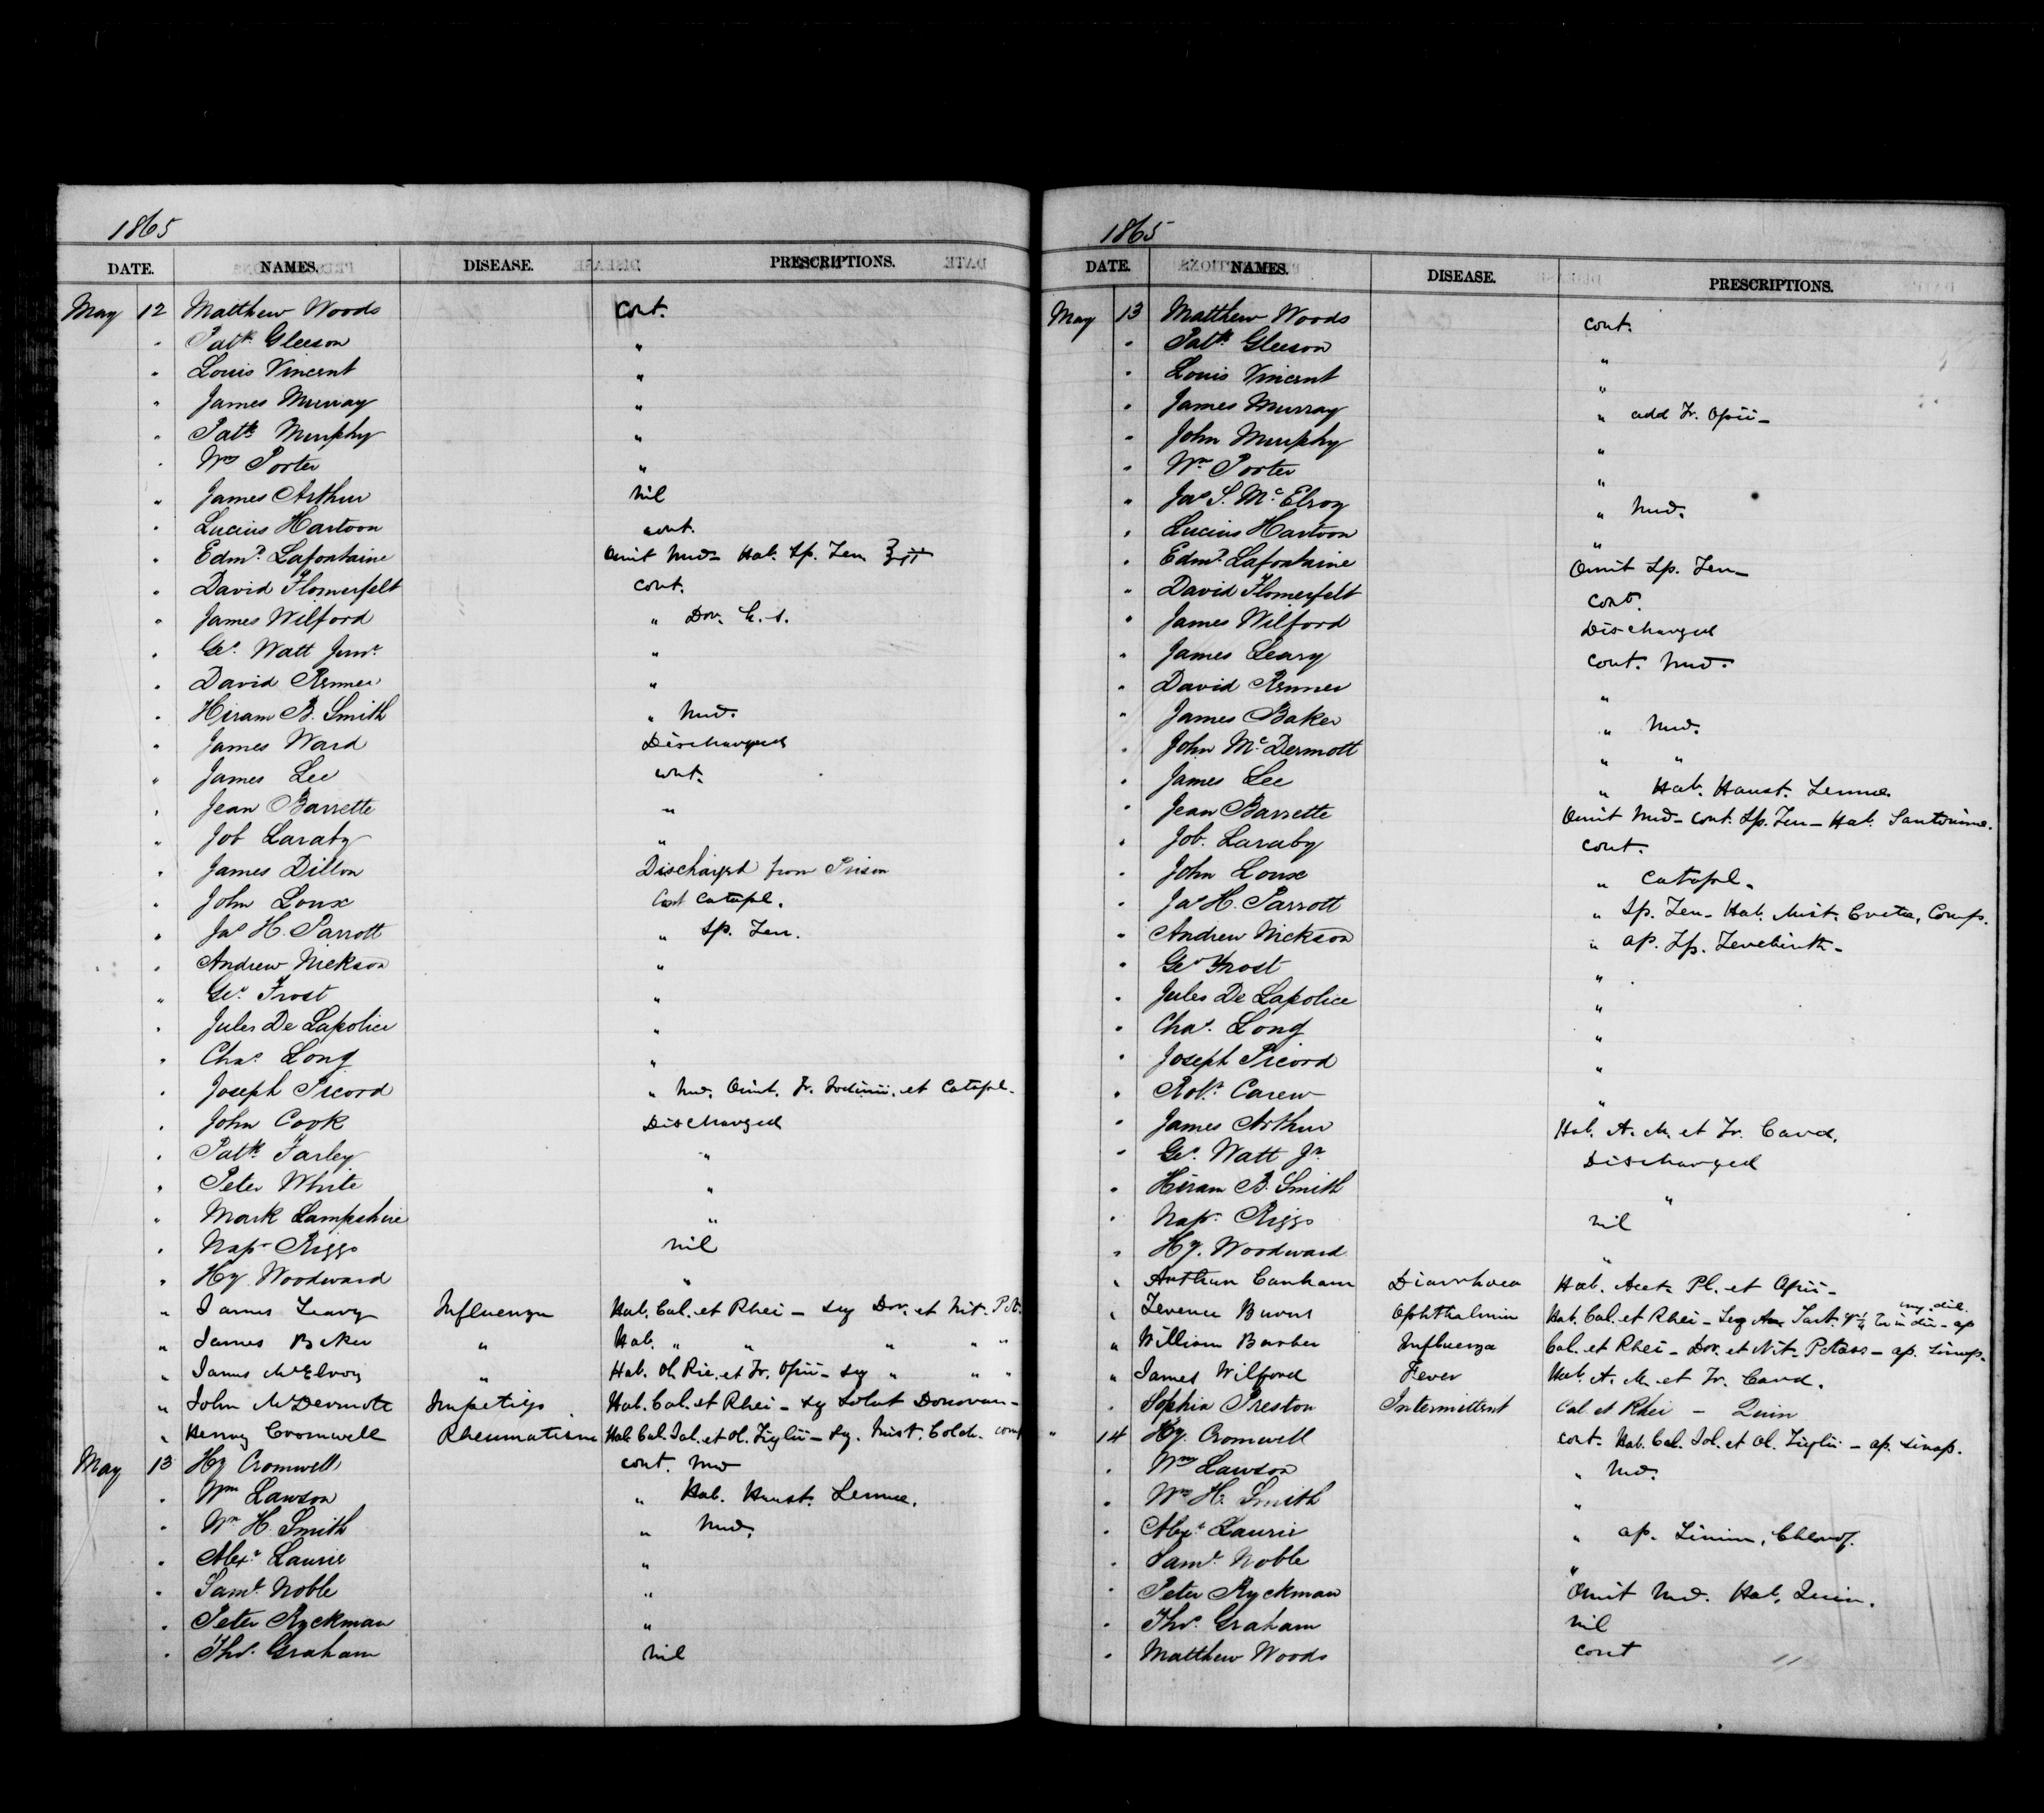 1865
DATE. NAMES. DISEASE. PRESCRIPTIONS.
May 12 Matthew Woods cont.
" Patk. Gleeson "
" Louis Vincent "
" James Murray "
" Patk. Murphy "
" Wm Porter "
" James Arthur nil
" Lucius Hartoon cont.
" Edmd. Lafontaine Omit Med- Hab. Sp. Ten
" David Flomerfelt cont.
" James Wilford " Dov. h. s.
" Geo. Watt Junr. "
" David Renner "
" Hiram B. Smith " Med.
" James Ward Discharged
" James Lee cont.
" Jean Barrette "
" Job Laraby "
" James Dillon Discharged from Prison
" John Loux Cont Catapl.
" Jas H. Parrott " Sp. Ten.
" Andrew Nickson "
" Geo. Frost "
" Jules De Lapolice "
" Chas. Long "
" Joseph Picord " Med. Omit. Tr. Iodinii. et Catapl.
" John Cook Discharged
" Patk. Farley "
" Peter White "
" Mark Lampshire "
" Nap. Riggs nil
" Hy. Woodward "
" James Leavy Influenza Hab. Cal. et Rhei - Seq Dov. et Nit. Pot.
" James Baker " Hab. " " " " "
" James McElroy " Hab. Ol. Ric. et Tr. Opii - seq " " "
" John McDermott Impetigo Hab. Cal. et Rhei - seq Solut Donovan -
" Henry Cromwell Rheumatism Hab. Cal. Jal. et Ol. Tiglii - Seq. Mist. Colch. comp
May 13 Hy Cromwell cont. Med
" Wm Lawson " Hab. Haust. Sennae.
" Wm H. Smith " Med.
" Alexr. Laurie "
" Saml. Noble "
" Peter Ryckman "
" Thos. Graham nil
1865
DATE. NAMES. DISEASE. PRESCRIPTIONS.
May 13 Matthew Woods cont.
" Patk. Gleeson "
" Louis Vincent "
" James Murray " add Tr. Opii -
" John Murphy "
" Wm. Porter "
" Jas S. McElroy " Med.
" Lucius Hartoon "
" Edmd. Lafontaine Omit Sp. Ten -
" David Flomerfelt cont.
" James Wilford Discharged
" James Leary cont. Med.
" David Renner "
" James Baker " Med.
" John McDermott " "
" James Lee " Hab. Haust. Sennae.
" Jean Barrette Omit Med - cont. Sp. Ten - Hab. Santonine.
" Job. Laraby cont.
" John Loux " Catapl.
" Jas H. Parrott " Sp. Ten - Hab. Mist. Creta. Comp.
" Andrew Nickson " ap. Sp. Terebinth -
" Geo Frost "
" Jules De Lapolice "
" Chas. Long "
" Joseph Picord "
" Robt. Carew "
" James Arthur Hab. A. M. et Tr. Card.
" Geo. Watt Jr. Discharged
" Hiram B. Smith "
" Nap. Riggs nil
" Hy. Woodward "
" Arthur Canham Diarrhoea Hab. Acet. Pl. et Opii -
" Terence Burns Ophthalmia Hab. Cal. et Rhei - Seq Tart.
" William Barber Influenza Cal. et Rhei - Dov. et Nit. Potass - ap. Sinap.
" James Wilford Fever Hab. A. M. et Tr. Card.
" Sophia Preston Intermittent Cal. et Rhei - Quin
" 14 Hy. Cromwell cont. Hab. Cal. Jal. et Ol. Tiglii - ap. Sinap.
" Wm Lawson " Med.
" Wm H. Smith "
" Alexr Laurie " ap. Linim. Chlorof.
" Saml. Noble "
" Peter Ryckman Omit Med. Hab. Quin.
" Thos. Graham nil
" Matthew Woods cont